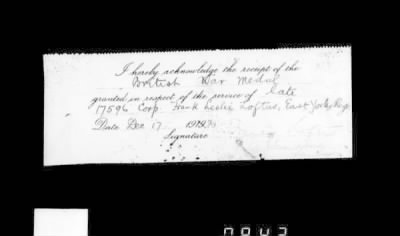 I hereby acknowledge the receipt of the
British War Medal
granted in respect of the service of late
17596 Corp. Frank Leslie Loftus, East Yorks Regt
Date Dec 17 1919
Signature